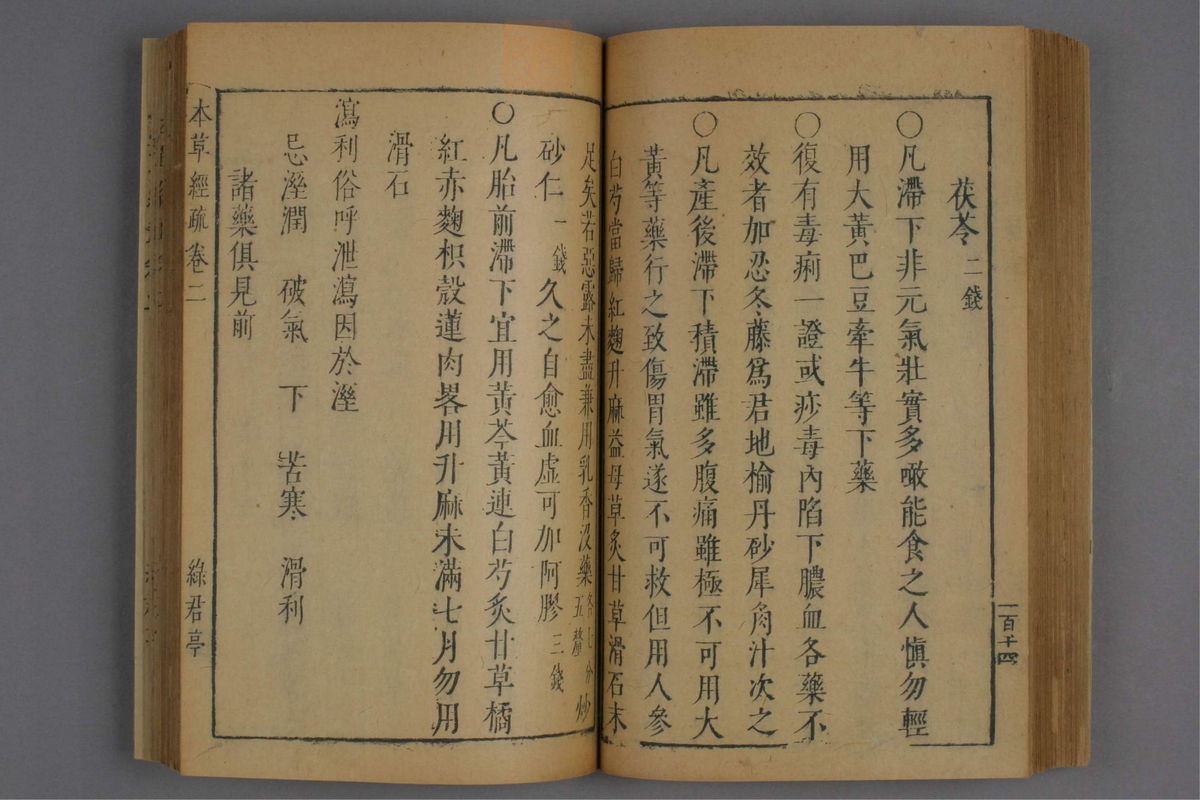 茯苓二錢
〇凡滯下非元氣壯實多噉能食之人慎勿輕
用大黃巴豆牽牛等下藥
〇復有毒痢一證或痧毒內陷下膿血各藥不
效者加忍冬藤爲君地榆丹砂犀角汁次之
〇凡產後滯下積滯雖多腹痛雖極不可用大
黃等藥行之致傷胃氣遂不可救但用人參
白芍當歸紅麴升麻益母草炙甘草滑石末
足矣若惡露未盡兼用乳香沒藥各七分五釐炒
砂仁一錢久之自愈血虛可加阿膠三錢
〇凡胎前滯下宜用黃芩黃連白芍炙甘草橘
紅赤麴枳殼蓮肉畧用升麻未滿七月勿用
滑石
瀉利俗呼泄瀉因於溼
忌溼潤 破氣 下 苦寒 滑利
諸藥俱見前
本草經疏 卷二 綠君亭
一百十四